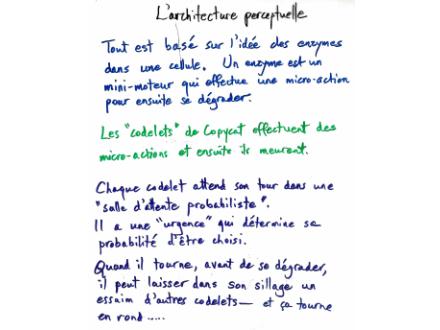 L'architecture perceptuelle
Tout est basé sur l'idée des enzymes
dans une cellule. Un enzyme est un
mini-moteur qui effectue une micro-action
pour ensuite se dégrader.
Les "codelets" de Copycat effectuent des
micro-actions et ensuite ils meurent.
Chaque codelet attend son tour dans une
"salle d'attente probabiliste".
Il a une "urgence" qui détermine sa
probabilité d'être choisi.
Quand il tourne, avant de se dégrader,
il peut laisser dans son sillage un
essaim d'autres codelets — et ça tourne
en rond.....